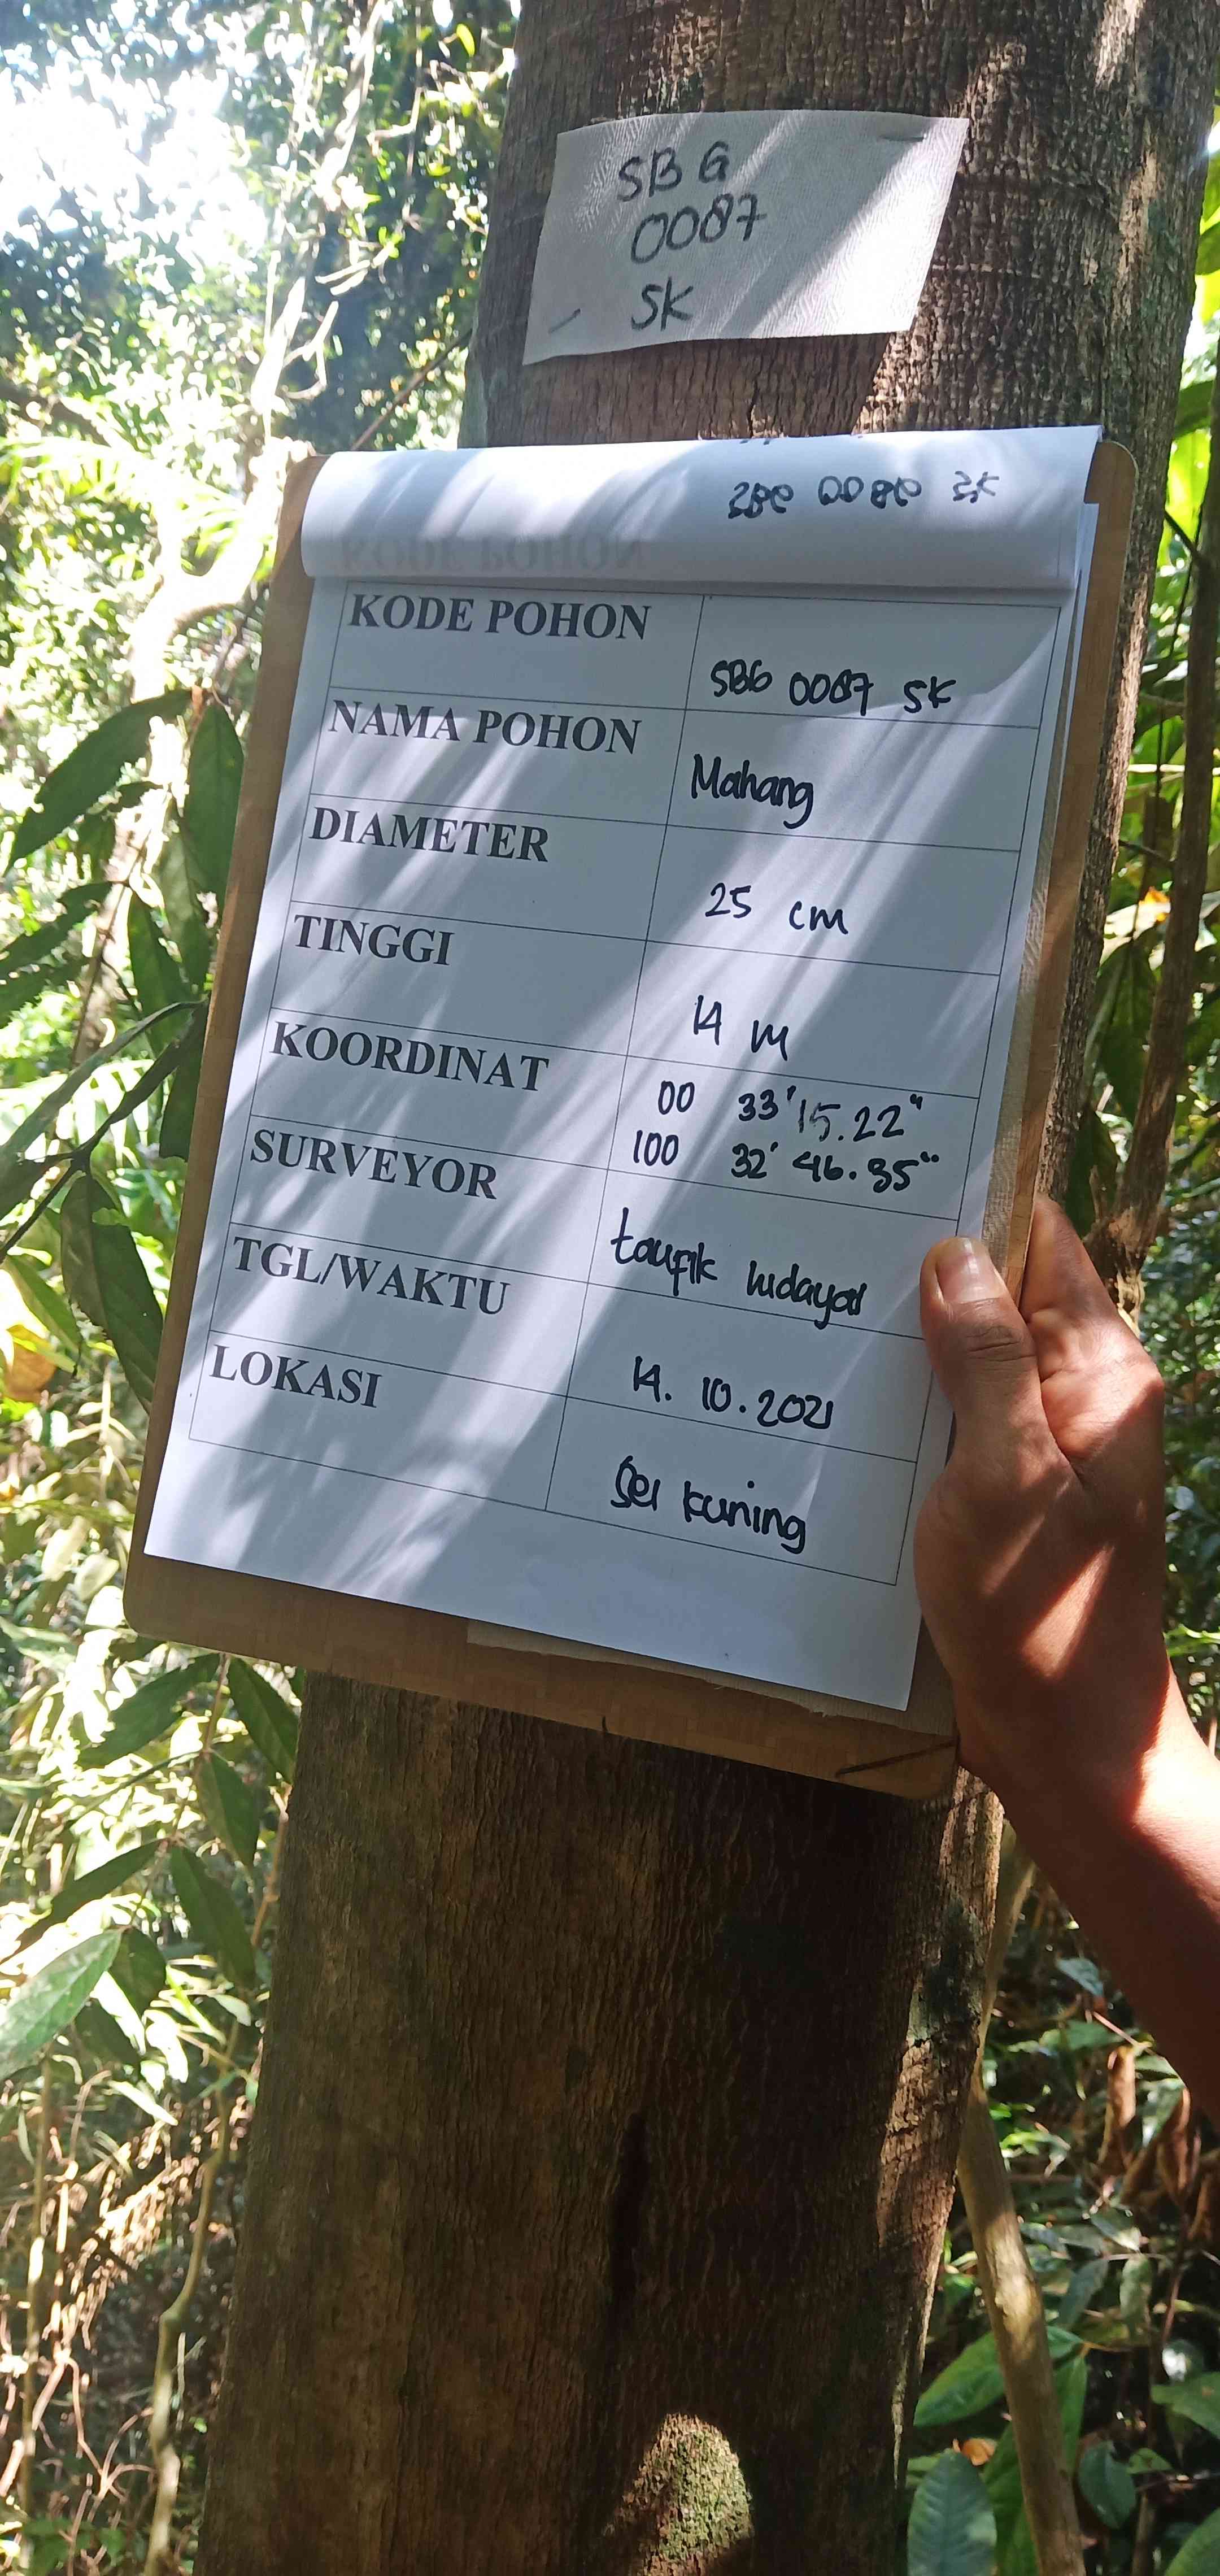 SBG
0087
SK
KODE POHON
SBG 0087 SK
NAMA POHON
Mahang
DIAMETER
25 cm
TINGGI
14 m
KOORDINAT
00 33'15.22"
100 32' 46.35"
SURVEYOR
taufik hidayat
TGL/WAKTU
14.10.2021
LOKASI
Sei kuning